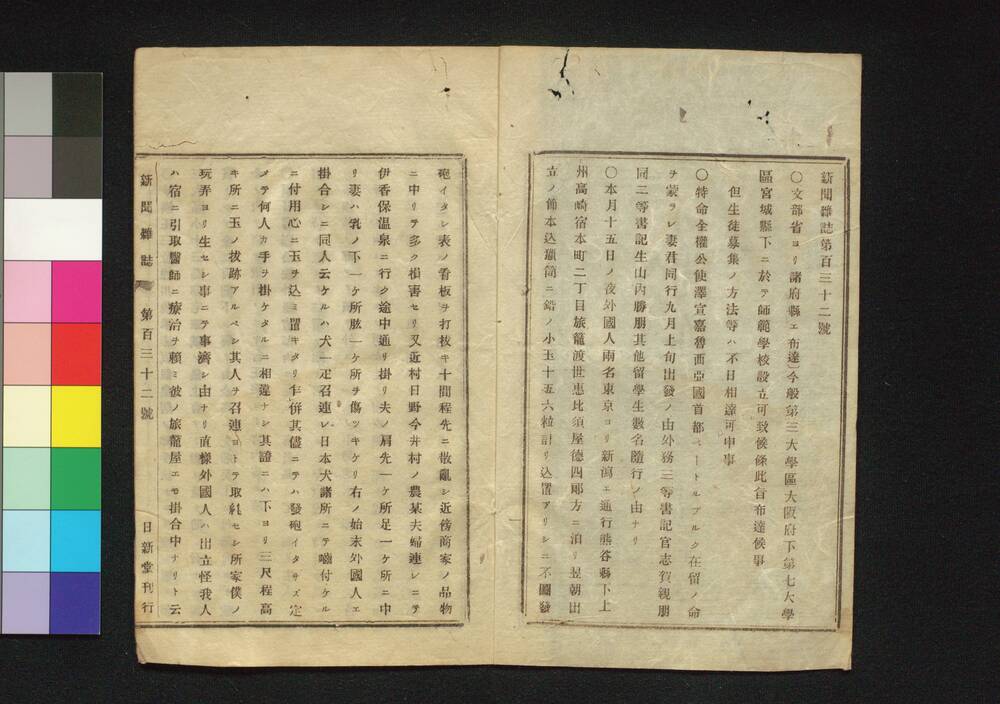 新聞雜誌第百三十二號
〇文部省ヨリ諸府縣エ布達)今般第三大學區大阪府下第七大學
區宮城縣下ニ於テ師範學校設立可致候條此旨布達候事
但生徒募集ノ方法等ハ不日相達可申事
〇特命全權公使澤宣嘉魯西亞國首都ペートルブルク在留ノ命
ヲ蒙ラレ妻君同行九月上旬出發ノ由外務三等書記官志賀親朋
同二等書記生山內勝朋其他留學生數名隨行ノ由ナリ
〇本月十五日ノ夜外國人兩名東京ヨリ新潟エ通行熊谷縣下上
州高崎宿本町二丁目旅籠渡世恵比須屋德四郎方ニ泊リ翌朝出
立ノ節本込獵筒ニ鉛ノ小玉十五六粒計リ込置アリシニ不圖發
砲イタシ表ノ看板ヲ打拔キ十間程先ニ散亂シ近傍商家ノ品物
ニ中リテ多ク損害セリ又近村日野今井村ノ農某夫婦連レニテ
伊香保溫泉ニ行ク途中通リ掛リ夫ノ肩先一ケ所足一ケ所ニ中
リ妻ハ乳ノ下一ケ所肱一ケ所ヲ傷ツキケリ右ノ始末外國人エ
掛合シニ同人云ケルハ犬一疋召連レ日本犬諸所ニテ嚙付ケル
ニ付用心ニ玉ヲ込ミ置キタリ乍併其儘ニテハ發砲イタサズ定
メテ何人カ手ヲ掛ケタルニ相違ナシ其證ニハ下ヨリ三尺程高
キ所ニ玉ノ拔跡アルベシ其人ヲ召連ヨトテ取糺セシ所家僕ノ
玩弄ヨリ生セシ事ニテ事濟シ由ナリ直樣外國人ハ出立怪我人
ハ宿ニ引取醫師ニ療治ヲ賴ミ彼ノ旅籠屋エモ掛合中ナリト云
新聞雜誌 第百三十二號 日新堂刊行